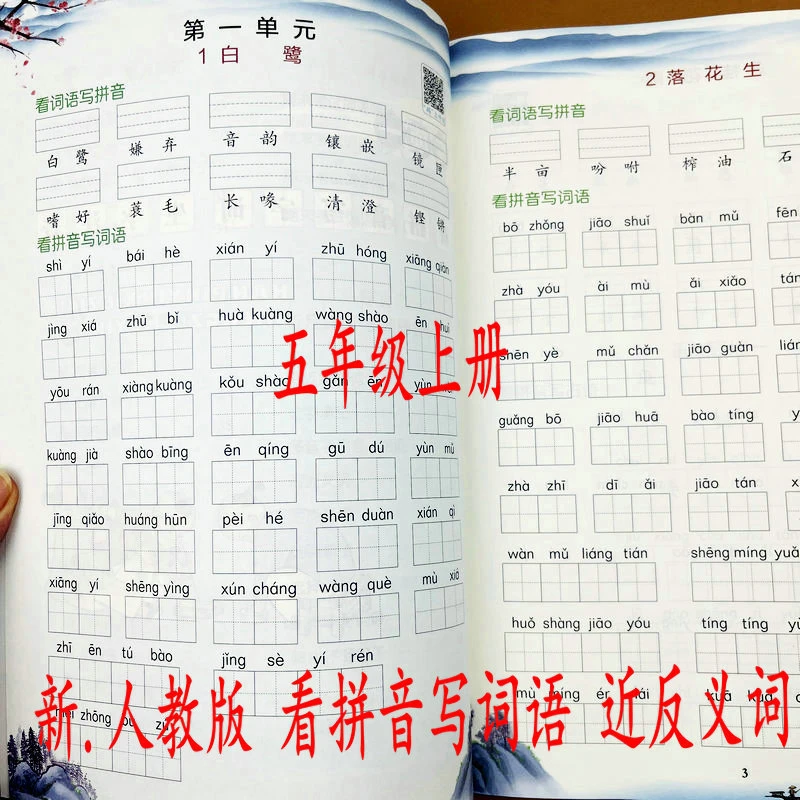 第一单元
1 白 鹭
看词语写拼音
白 鹭 嫌 弃 音 韵 镶 嵌 镜 匣
嗜 好 蓑 毛 长 喙 清 澄 铿 锵
看拼音写词语
shì yí bái hè xián yí zhū hóng xiāng qiàn
jìng xiá zhū bǐ huà kuàng wàng shào ēn huì
yōu rán xiàng kuàng kǒu shào gǎn ēn yùn
kuàng jià shào bīng ēn qíng gū dú yùn mǔ
jīng qiǎo huáng hūn pèi hé shēn duàn xián qì
xiāng yí shēng yìng xún cháng wàng què mù xiǎo
zhī ēn tú bào jǐng sè yí rén
měi zhōng bù zú
2 落 花 生
看词语写拼音
半 亩 吩 咐 榨 油 石
看拼音写词语
bō zhǒng jiāo shuǐ bàn mǔ fēn
zhà yóu ài mù ǎi xiǎo tán
shēn yè mǔ chǎn jiāo guàn lián
guǎng bō jiāo huā bào tíng y
zhà zhī dī ǎi jiāo tán x
wàn mǔ liáng tián shēng míng yuǎ
huǒ shàng jiāo yóu tíng tíng yù
mù míng ér kuā kuā
3
五年级上册
新.人教版 看拼音写词语 近反义词